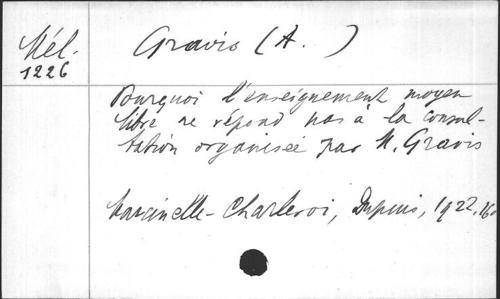 Mél.
1226
Gravis (A. )
Pourquoi l'enseignement moyen
libre ne répond pas à la consul-
tation organisée par M. Gravis
Marcinelle-Charleroi, Dupuis, 1922, 16°